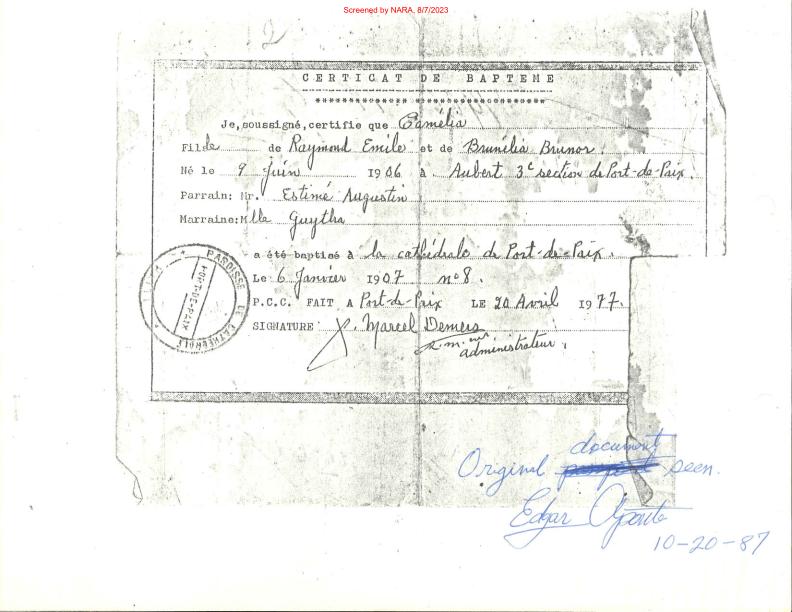 Screened by NARA, 8/7/2023
2
CERTICAT DE BAPTEME
**************************
Je, soussigné, certifie que Camélia
Fille de Raymond Emile et de Brunélia Brunor.
Né le 9 Juin 1906 à Aubert 3e section de Port-de-Paix.
Parrain: Mr. Estimé Augustin
Marraine: Mlle Guytha
a été baptisé à la cathédrale de Port-de-Paix.
Le 6 Janvier 1907 no 8.
P.C.C. FAIT A Port-de-Paix LE 20 Avril 1977.
SIGNATURE Marcel Demers
administrateur.
PAROISSE
PORT-DE-PAIX
document
Original seen.
Edgar Aponte
10-20-87